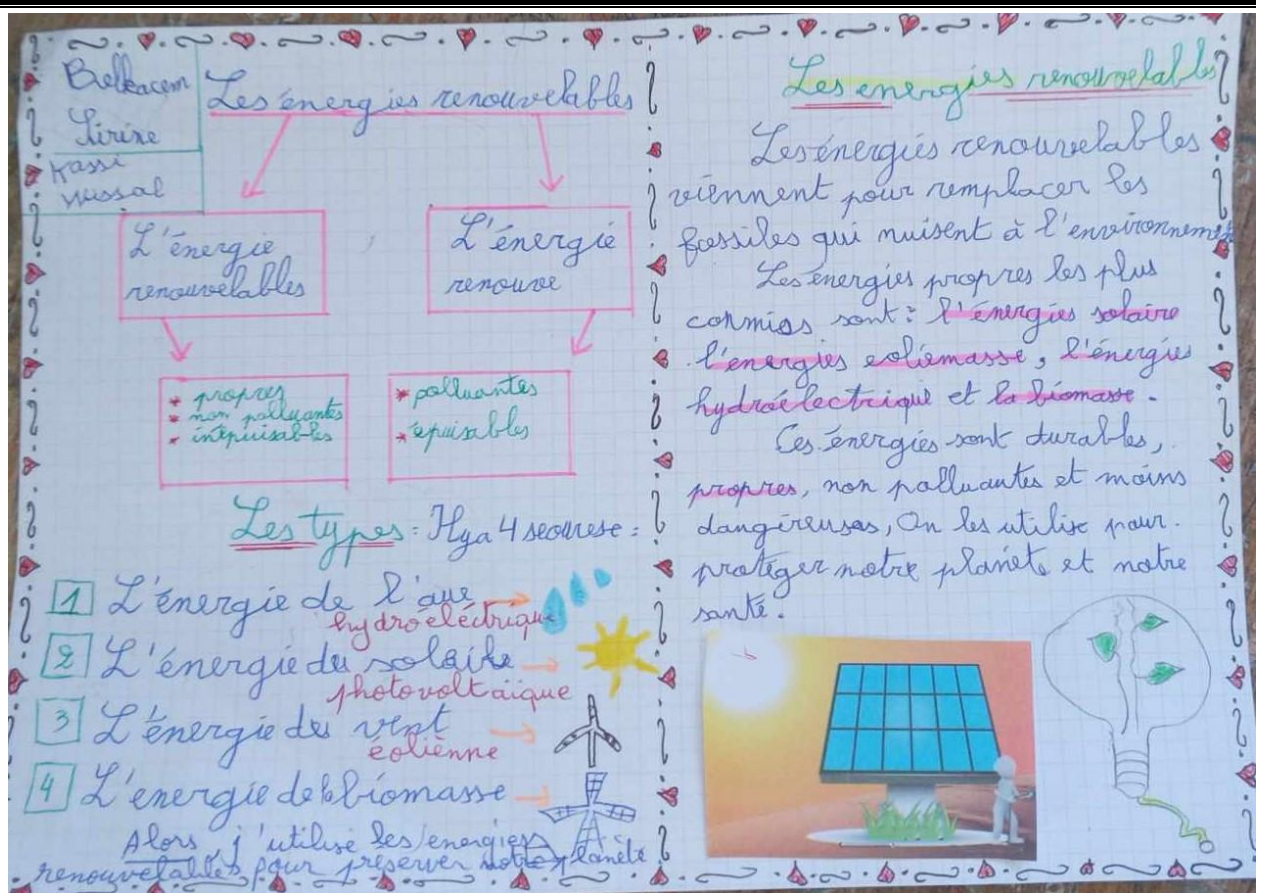 Belkacem
Lirine
Kassi
Wissal
Les énergies renouvelables
L'énergie
renouvelables
L'énergie
renouve
* propres
* non polluantes
* inépuisables
* polluantes
* épuisables
Les types: Ilya 4 seourese:
1 L'énergie de l'aue
hydroéléctrique
2 L'énergie du solaire
photovoltaïque
3 L'énergie des vent
éolienne
4 L'énergie de la biomasse
Alors, j'utilise les énergies
renouvelables pour préserver notre planète
Les energies renouvelables
Les énergies renouvelables
viennent pour remplacer les
fossiles qui nuisent à l'environnement
Les énergies propres les plus
conmios sont: l'énergies solaire
l'énergies eoliemasse, l'énergies
hydroélectrique et la biomasse.
Ces énergies sont durables,
propres, non polluantes et moins
dangéreuses, On les utilise pour.
protéger notre planète et notre
santé.